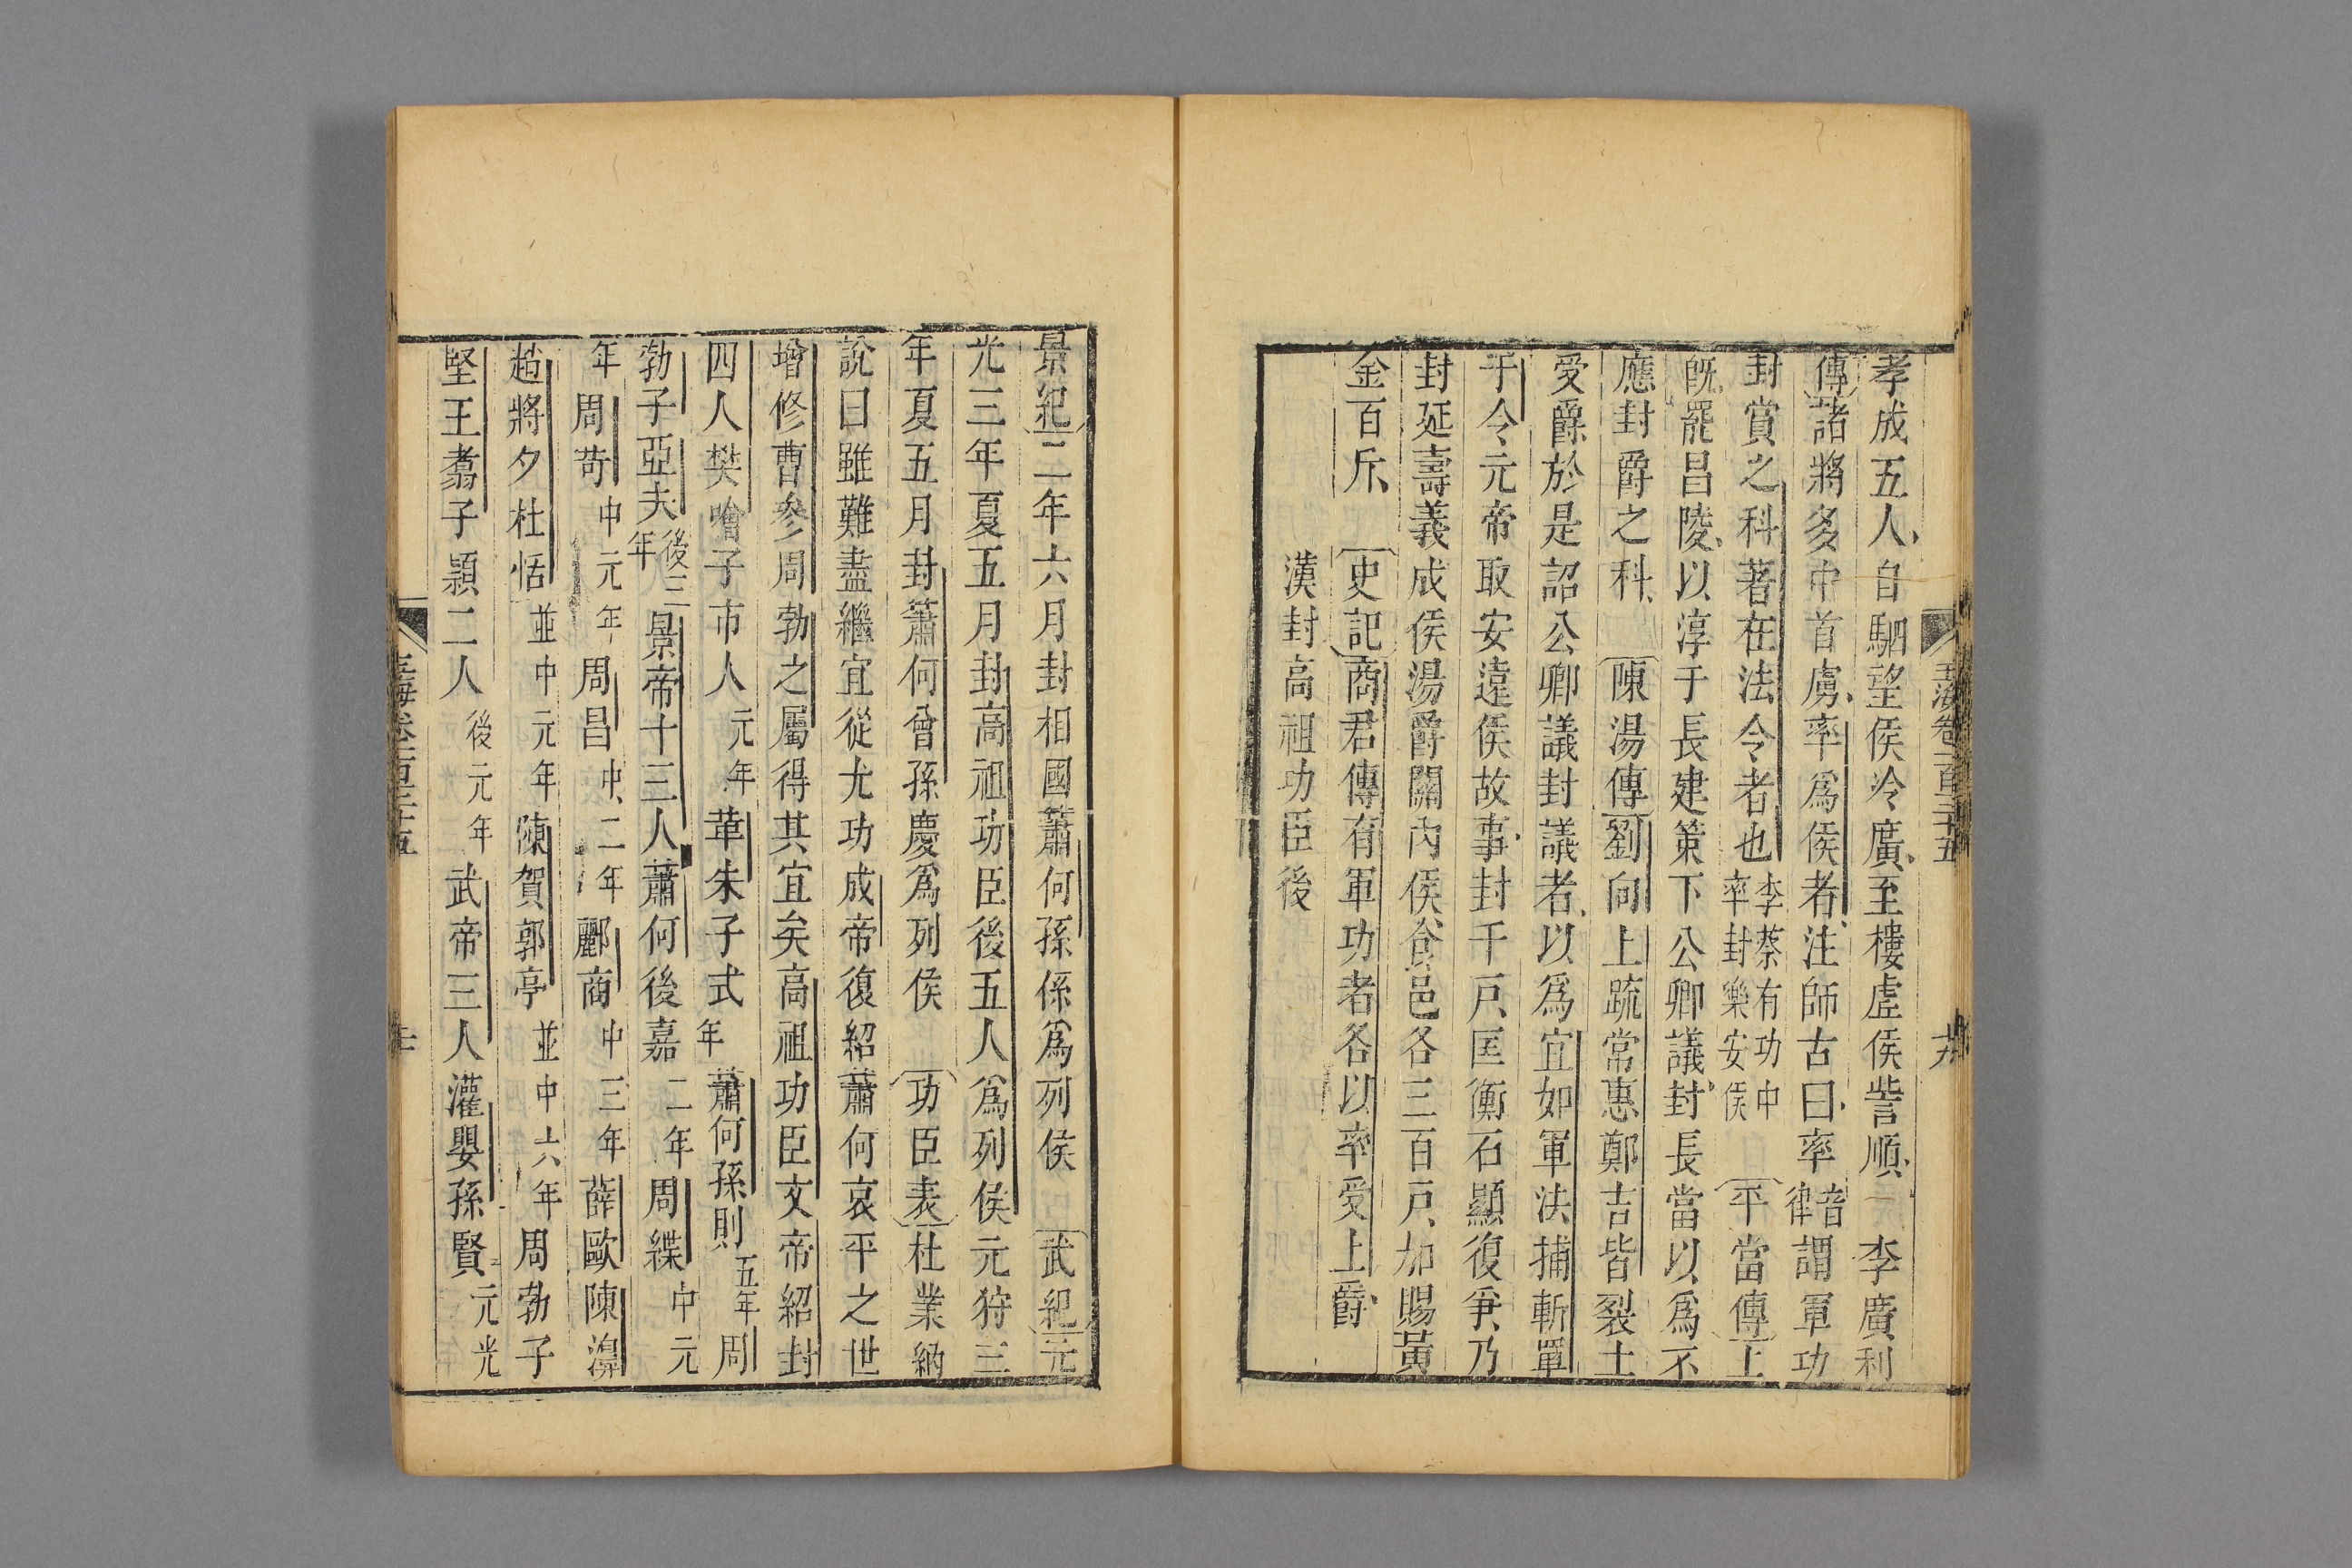 孝成五人自駟望侯冷廣至樓虗侯訾順李廣利
傳諸將多中首虜率爲侯者注師古曰率音律謂軍功
封賞之科著在法令者也李蔡有功中率封樂安侯平當傳上
旣罷昌陵以淳于長建策下公卿議封長當以爲不
應封爵之科陳湯傳劉向上疏常惠鄭吉皆裂土
受爵於是詔公卿議封議者以爲宜如軍法捕斬單
于令元帝取安遠侯故事封千戸匡衡石顯復爭乃
封延壽義成侯湯爵關內侯食邑各三百戸加賜黃
金百斤史記商君傳有軍功者各以率受上爵
漢封高祖功臣後
景紀二年六月封相國蕭何孫係爲列侯武紀元
光三年夏五月封高祖功臣後五人爲列侯元狩三
年夏五月封蕭何曾孫慶爲列侯功臣表杜業納
說曰雖難盡繼宜從尤功成帝復紹蕭何哀平之世
增修曹參周勃之屬得其宜矣高祖功臣文帝紹封
四人樊噲子市人元年革朱子式年蕭何孫則五年周
勃子亞夫後三年景帝十三人蕭何後嘉二年周緤中元
年周苛中元年周昌中二年酈商中三年薛歐陳濞
趙將夕杜恬並中元年陳賀郭亭並中六年周勃子
堅王翥子顯二人後元年武帝三人灌嬰孫賢元光
玉海卷一百三十五